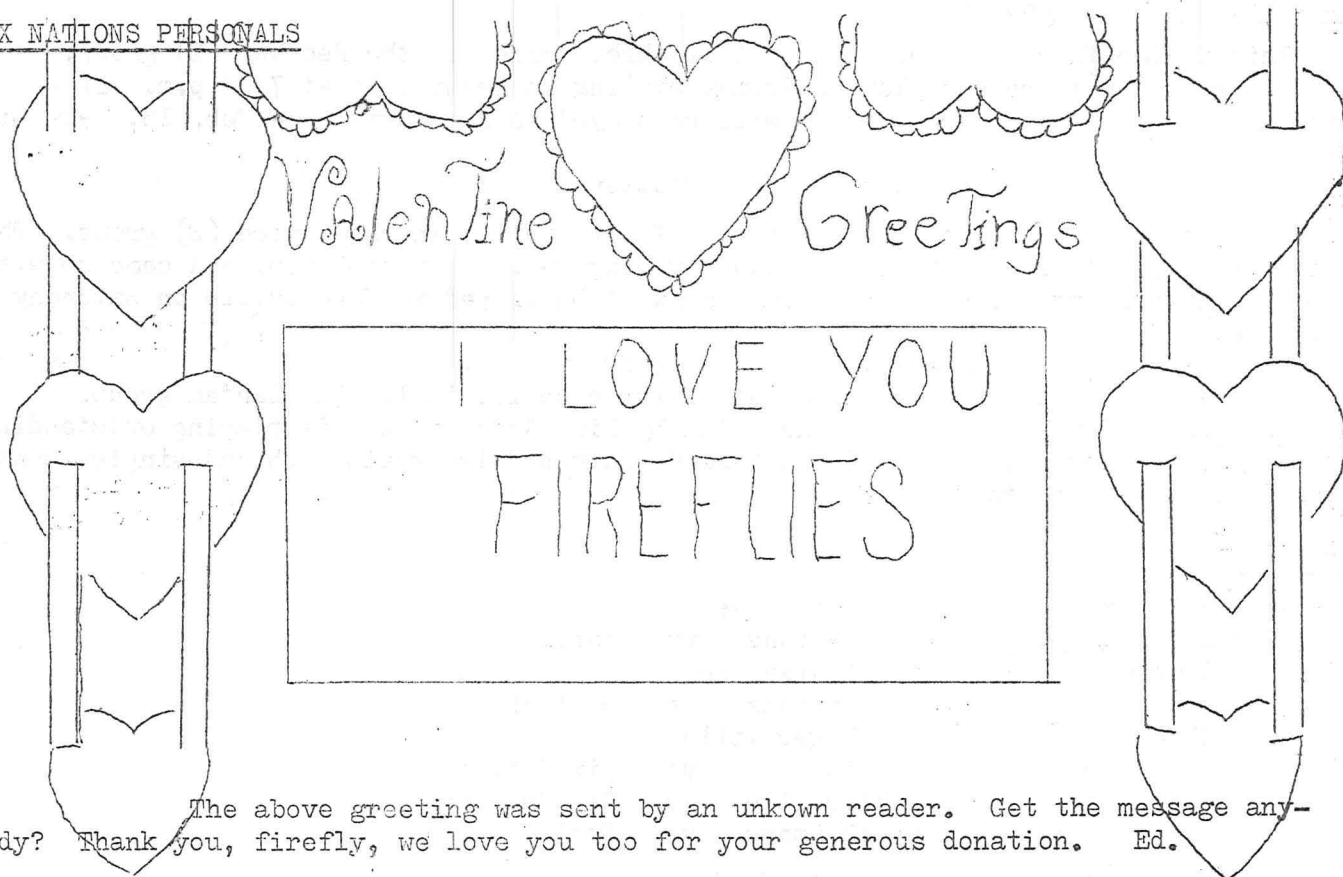 X NATIONS PERSONALS
ValenTine GreeTings
I LOVE YOU
FIREFLIES
The above greeting was sent by an unkown reader. Get the message any-
dy? Thank you, firefly, we love you too for your generous donation. Ed.